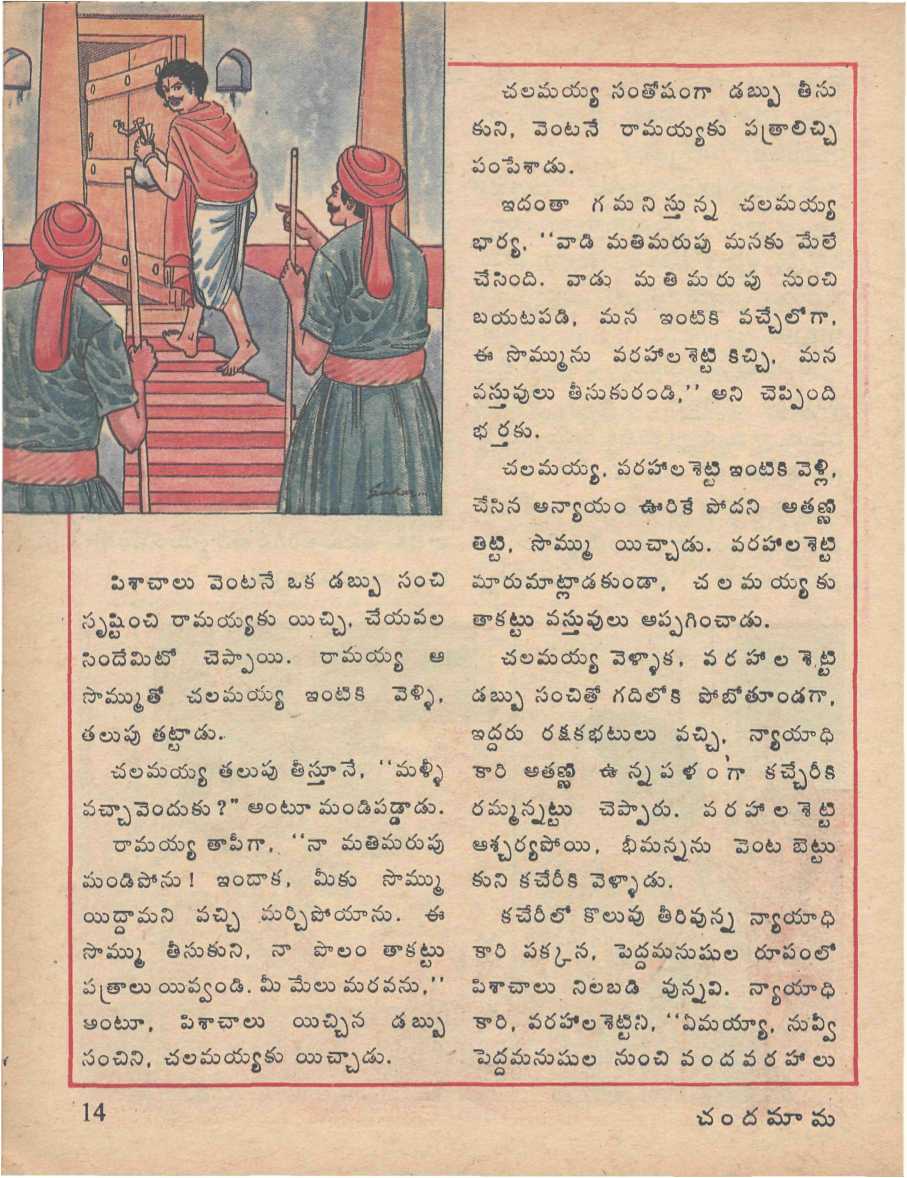 పిశాచాలు వెంటనే ఒక డబ్బు సంచి
సృష్టించి రామయ్యకు యిచ్చి, చేయవల
సిందేమిటో చెప్పాయి. రామయ్య ఆ
సొమ్ముతో చలమయ్య ఇంటికి వెళ్ళి,
తలుపు తట్టాడు.
చలమయ్య తలుపు తీస్తూనే, ‘‘మళ్ళీ
వచ్చావెందుకు?” అంటూ మండిపడ్డాడు.
రామయ్య తాపీగా, ‘‘నా మతిమరుపు
మండిపోను! ఇందాక, మీకు సొమ్ము
యిద్దామని వచ్చి మర్చిపోయాను. ఈ
సొమ్ము తీసుకుని, నా పొలం తాకట్టు
పత్రాలు యివ్వండి. మీ మేలు మరవను,’’
అంటూ, పిశాచాలు యిచ్చిన డబ్బు
సంచిని, చలమయ్యకు యిచ్చాడు.
చలమయ్య సంతోషంగా డబ్బు తీసు
కుని, వెంటనే రామయ్యకు పత్రాలిచ్చి
పంపేశాడు.
ఇదంతా గమనిస్తున్న చలమయ్య
భార్య, ‘‘వాడి మతిమరుపు మనకు మేలే
చేసింది. వాడు మతిమరుపు నుంచి
బయటపడి, మన ఇంటికి వచ్చేలోగా,
ఈ సొమ్మును వరహాలశెట్టి కిచ్చి, మన
వస్తువులు తీసుకురండి,’’ అని చెప్పింది
భర్తకు.
చలమయ్య, వరహాలశెట్టి ఇంటికి వెళ్లి,
చేసిన అన్యాయం ఊరికే పోదని అతణ్ణి
తిట్టి, సొమ్ము యిచ్చాడు. వరహాలశెట్టి
మారుమాట్లాడకుండా, చలమయ్యకు
తాకట్టు వస్తువులు అప్పగించాడు.
చలమయ్య వెళ్ళాక, వరహాలశెట్టి
డబ్బు సంచితో గదిలోకి పోబోతూండగా,
ఇద్దరు రక్షకభటులు వచ్చి, న్యాయాధి
కారి అతణ్ణి ఉన్నపళంగా కచ్చేరీకి
రమ్మన్నట్టు చెప్పారు. వరహాలశెట్టి
ఆశ్చర్యపోయి, భీమన్నను వెంట బెట్టు
కుని కచేరీకి వెళ్ళాడు.
కచేరీలో కొలువు తీరివున్న న్యాయాధి
కారి పక్కన, పెద్దమనుషుల రూపంలో
పిశాచాలు నిలబడి వున్నవి. న్యాయాధి
కారి, వరహాలశెట్టిని, ‘‘ఏమయ్యా, నువ్వీ
పెద్దమనుషుల నుంచి వందవరహాలు
14
చందమామ